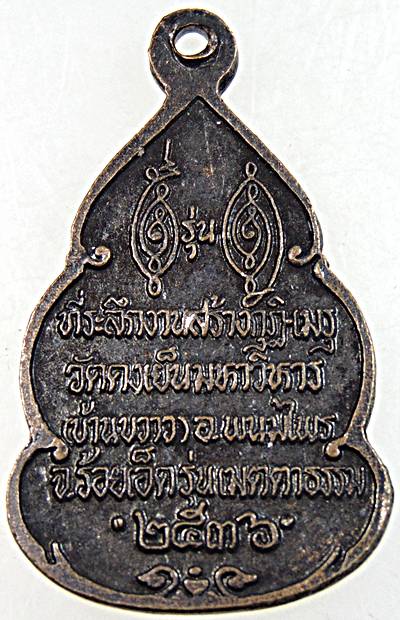 รุ่น ๑
ที่ระลึกงานสร้างกุฏิ-เมรุ
วัดดงเย็นมหาวิหาร
(บ้านขวาว) อ.พนมไพร
จ.ร้อยเอ็ด รุ่นเมตตาธรรม
๒๕๓๖